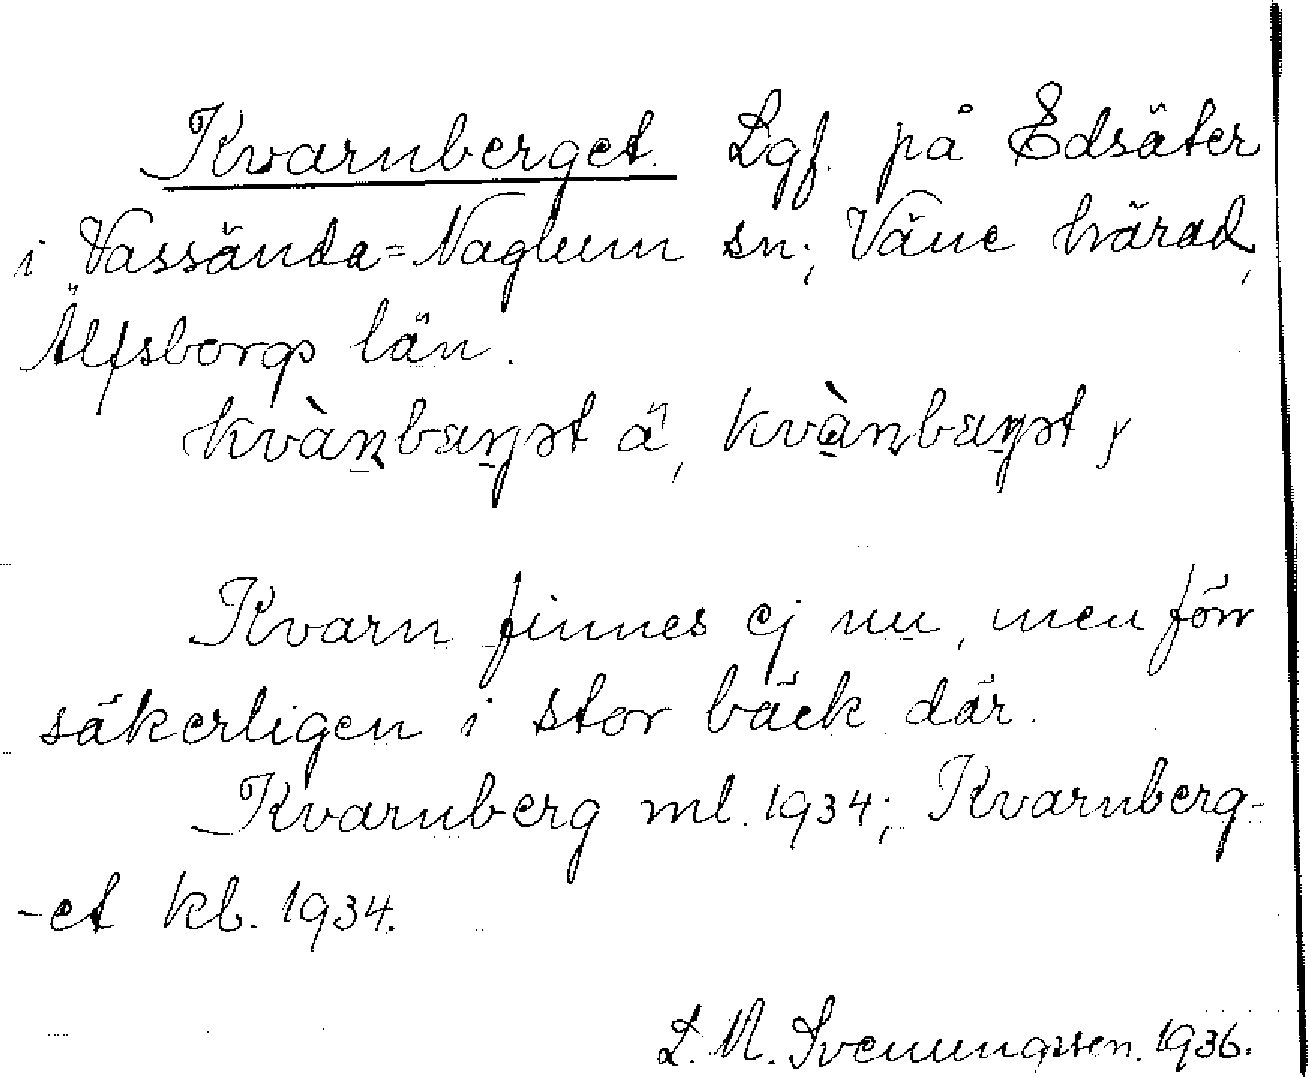 Kvarnberget. Lgf. på Edsäter
i Vassända=Naglum sn; Väne härad,
Älfsborgs län.
Kvarn finnes ej nu, men förr
säkerligen i stor bäck där.
Kvarnberg ml. 1934; Kvarnberg-
-et kb. 1934.
1936.